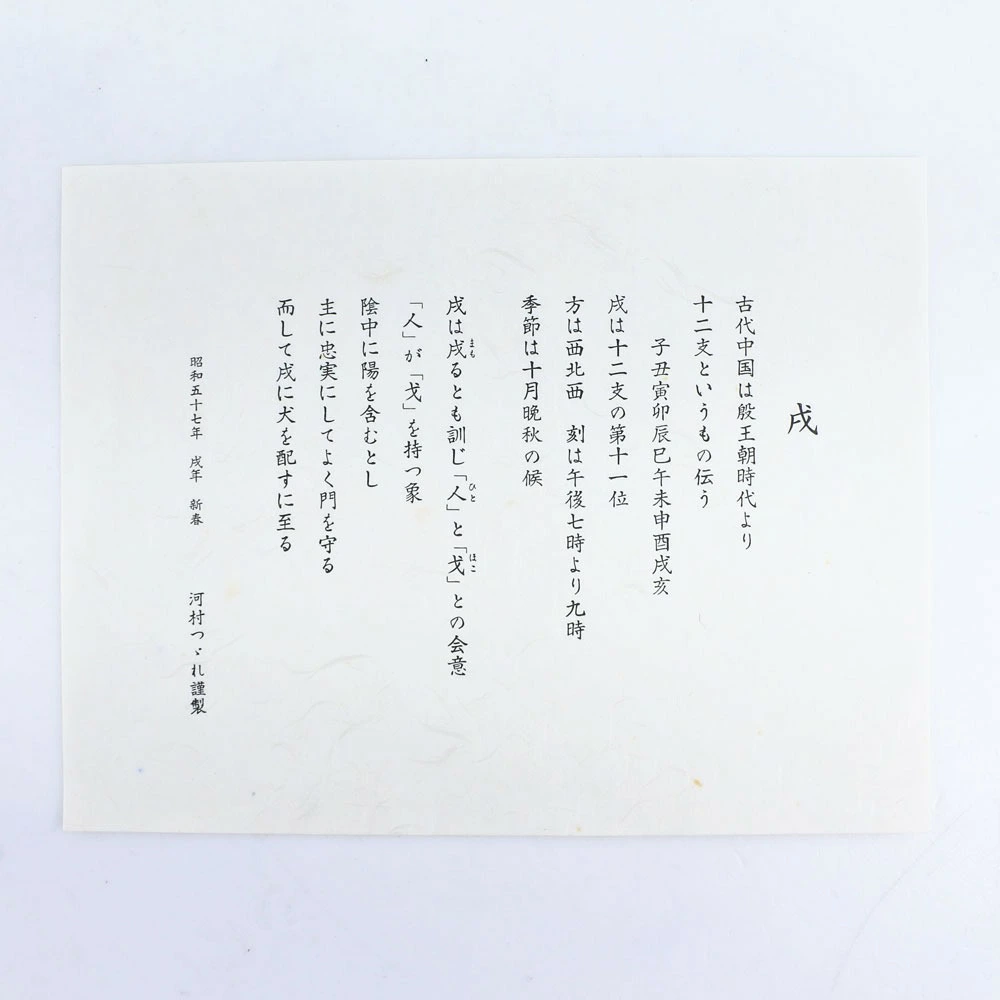 戌
古代中国は殷王朝時代より
十二支というもの伝う
子丑寅卯辰巳午未申酉戌亥
戌は十二支の第十一位
方は西北西　刻は午後七時より九時
季節は十月晩秋の候
戌は戌るとも訓じ「人」と「戈」との会意
「人」が「戈」を持つ象
陰中に陽を含むとし
主に忠実にしてよく門を守る
而して戌に犬を配すに至る
昭和五十七年　戌年　新春　河村つゞれ謹製